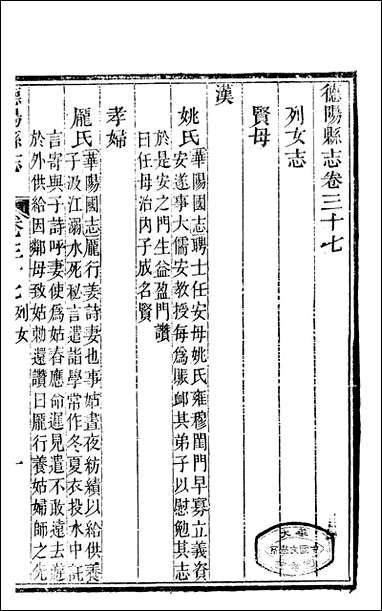 德陽縣志卷三十七
列女志
賢母
漢
姚氏 華陽國志聘士任安母姚氏雍穆閨門早寡立義資
安遂事大儒安教授每爲賑卹其弟子以慰勉其志
於是安之門生益盈門讚
曰任母治內子成名賢
孝婦
龐氏 華陽國志龐行姜詩妻也事姑晝夜紡績以給供養
子汲江溺水死秘言遣詣學常作冬夏衣投水中託
言寄與子詩呼妻使爲姑舂應命遲見遣不敢遠去
於外供給因鄰母致姑勑還讚曰龐行養姑婦師之先
德陽縣志
卷三十七 列女
一